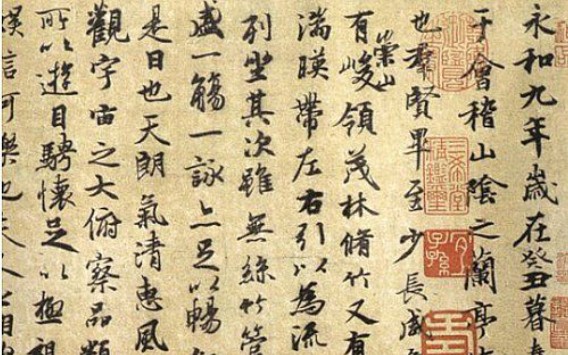 永和九年歲在癸丑暮
于會稽山陰之蘭亭
也羣賢畢至少長咸
有崇山峻領茂林脩竹又有
湍暎帶左右引以為流
列坐其次雖無絲竹管
盛一觴一詠亦足以暢
是日也天朗氣清惠風
觀宇宙之大俯察品類
所以遊目騁懷足以極視
娛信可樂也夫人之相
三希堂精鑑璽
宜子孫